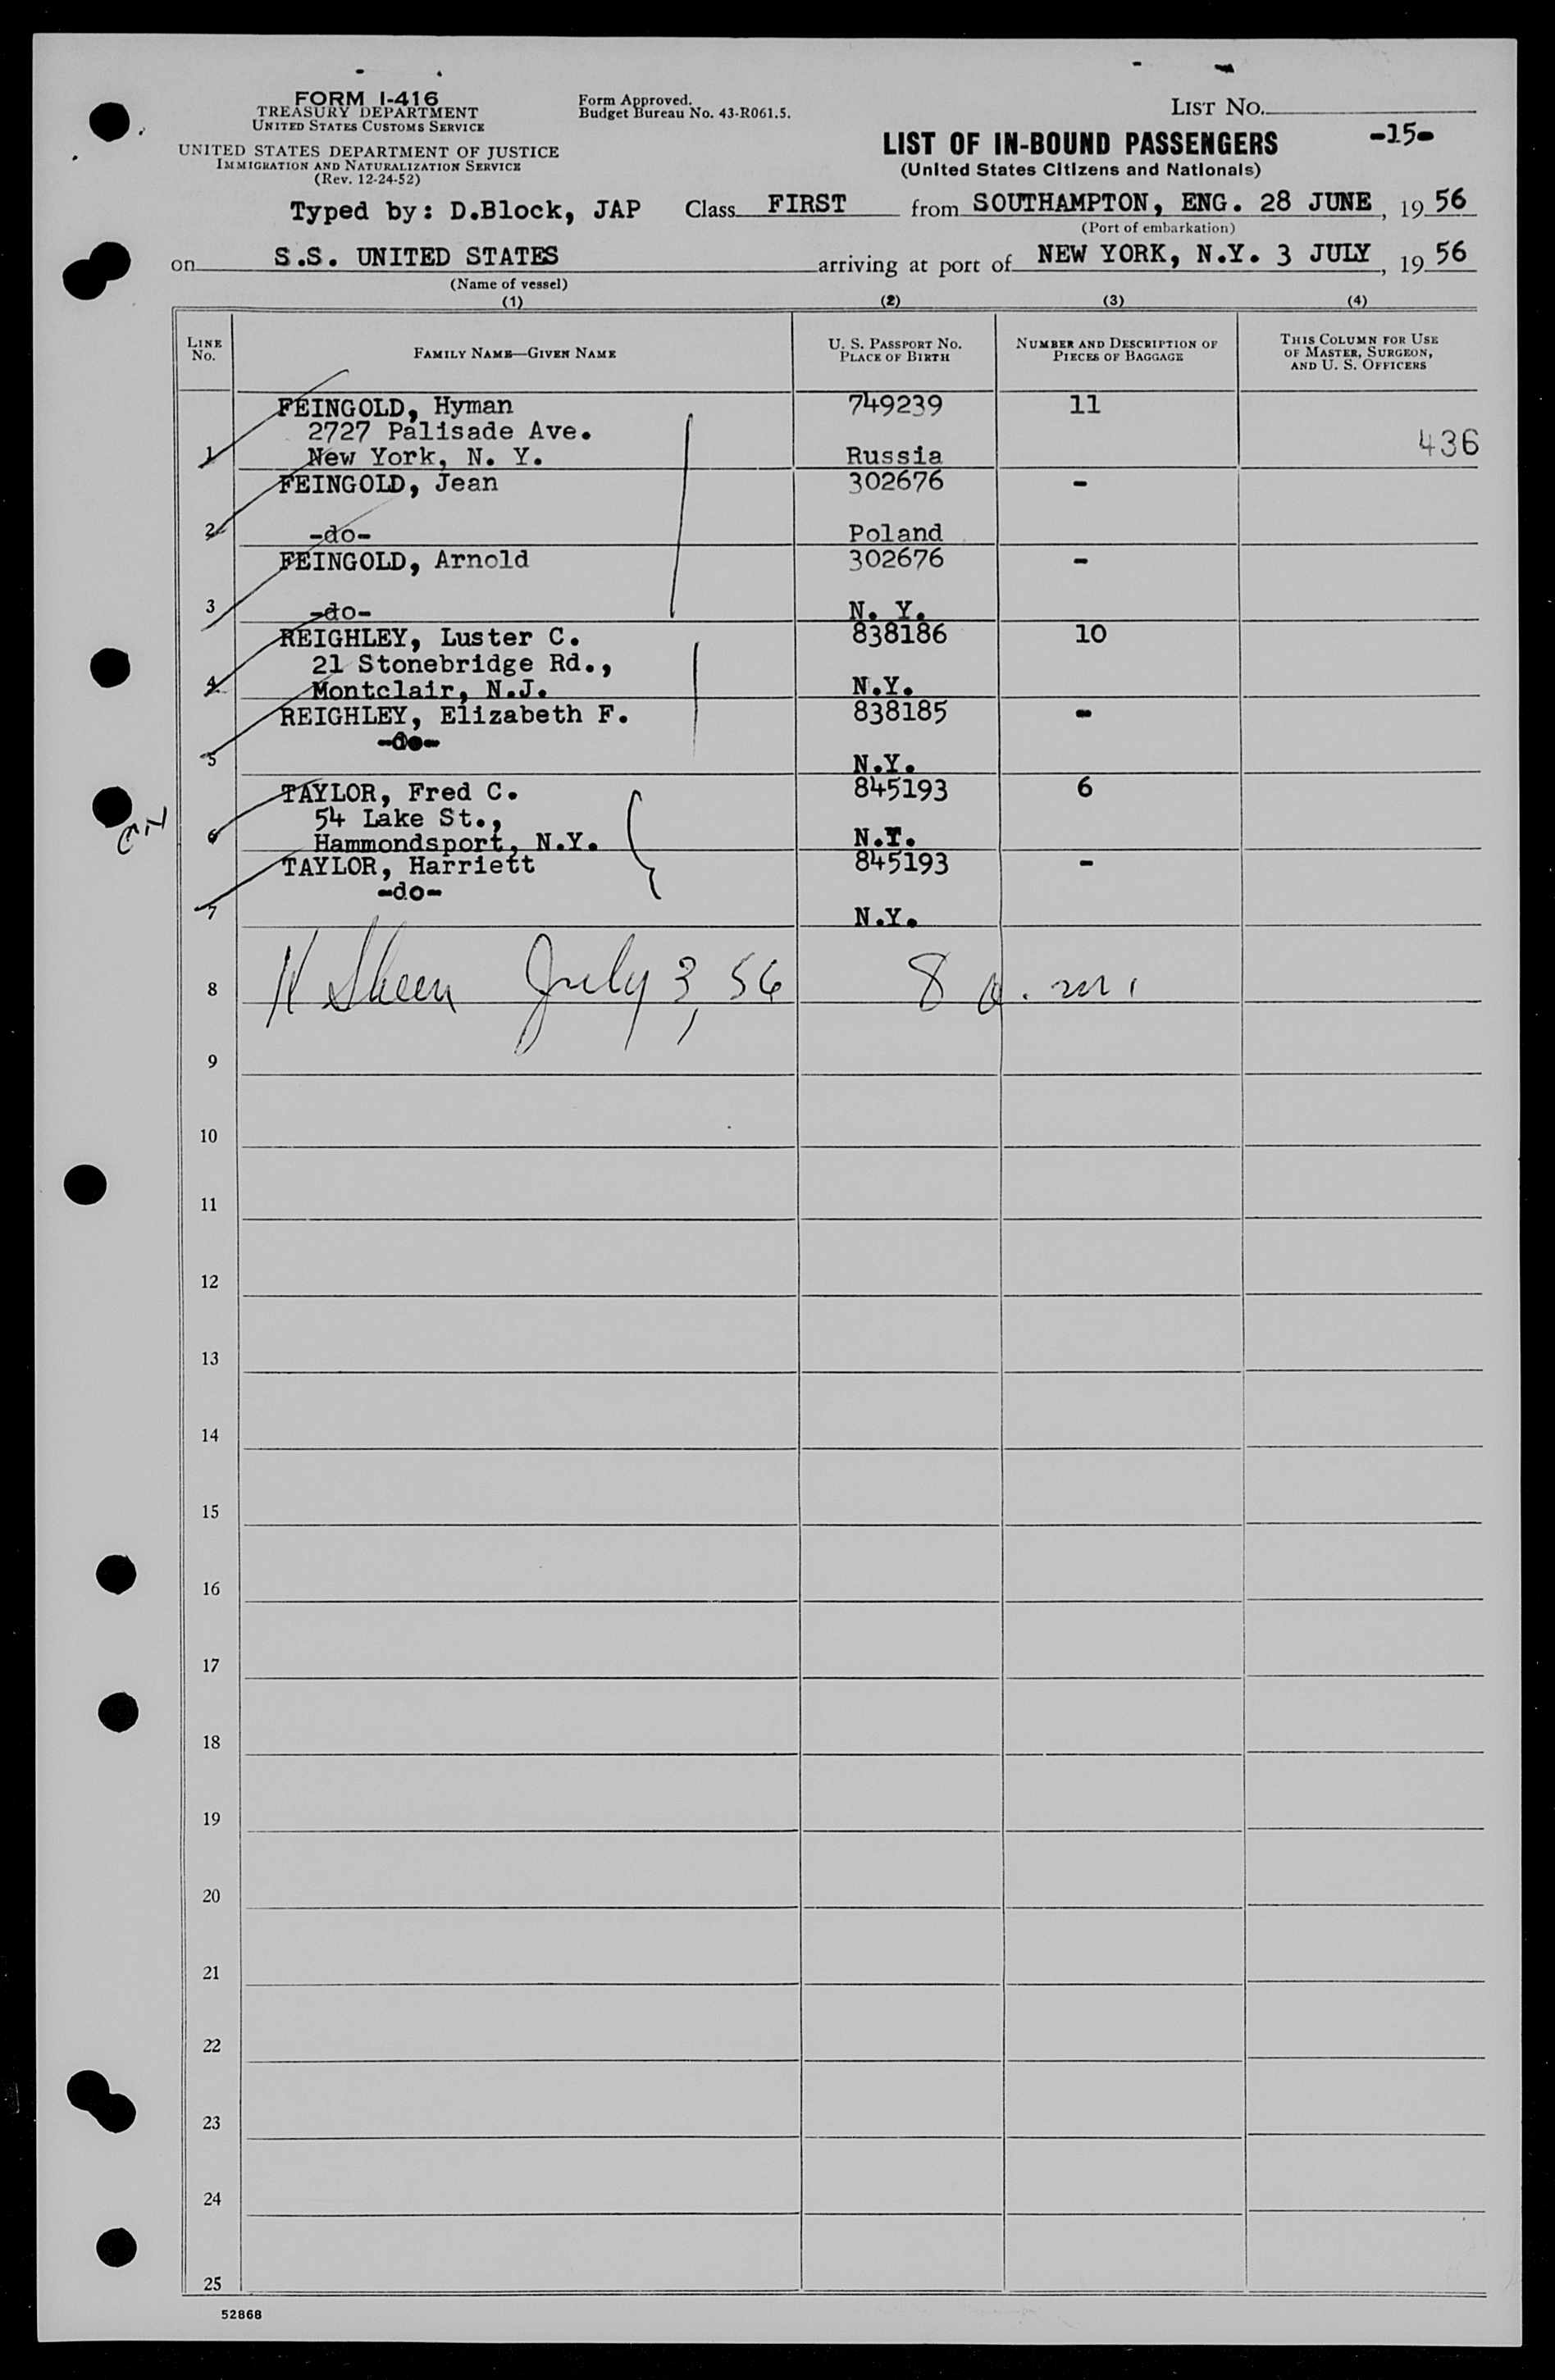 FORM I-416
TREASURY DEPARTMENT
UNITED STATES CUSTOMS SERVICE
UNITED STATES DEPARTMENT OF JUSTICE
IMMIGRATION AND NATURALIZATION SERVICE
(Rev. 12-24-52)
Form Approved.
Budget Bureau No. 43-R061.5.
LIST NO.
-15-
LIST OF IN-BOUND PASSENGERS
(United States Citizens and Nationals)
Typed by: D.Block, JAP Class FIRST from SOUTHAMPTON, ENG. 28 JUNE, 19 56
(Port of embarkation)
on S.S. UNITED STATES arriving at port of NEW YORK, N.Y. 3 JULY, 19 56
(Name of vessel)
(1) (2) (3) (4)
LINE NO. FAMILY NAME—GIVEN NAME U. S. PASSPORT NO. PLACE OF BIRTH NUMBER AND DESCRIPTION OF PIECES OF BAGGAGE THIS COLUMN FOR USE OF MASTER, SURGEON, AND U. S. OFFICERS
FEINGOLD, Hyman 749239 11
2727 Palisade Ave. 436
1 New York, N. Y. Russia
FEINGOLD, Jean 302676 -
2 -do- Poland
FEINGOLD, Arnold 302676 -
3 -do- N. Y.
REIGHLEY, Luster C. 838186 10
21 Stonebridge Rd.,
4 Montclair, N.J. N.Y.
REIGHLEY, Elizabeth F. 838185 -
-do-
5 N.Y.
TAYLOR, Fred C. 845193 6
54 Lake St.,
6 Hammondsport, N.Y. N.Y.
TAYLOR, Harriett 845193 -
-do-
7 N.Y.
8 H Sheen July 3, 56 8 a.m.
9
10
11
12
13
14
15
16
17
18
19
20
21
22
23
24
25
52868